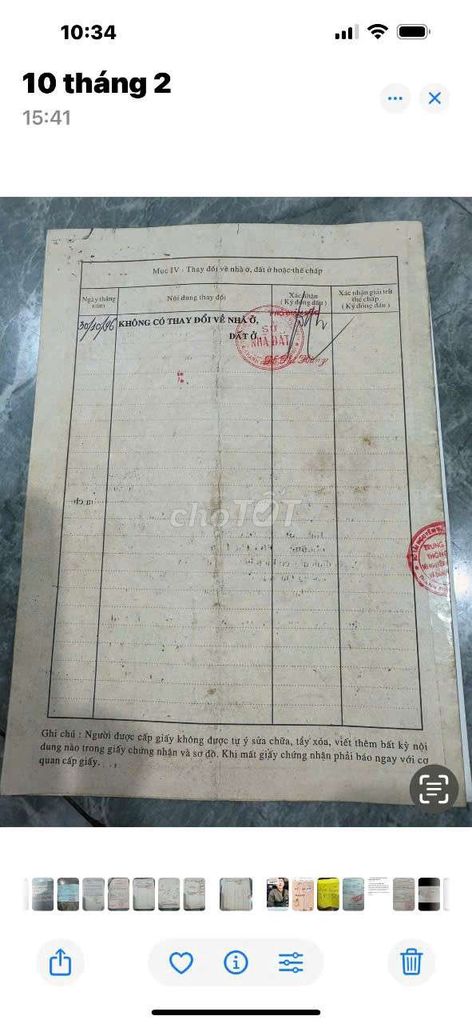 10:34
10 tháng 2
15:41
Mục IV - Thay đổi về nhà ở, đất ở hoặc thế chấp
Ngày tháng năm
Nội dung thay đổi
Xác nhận
( Ký đóng dấu )
Xác nhận giải trừ
thế chấp
( Ký đóng dấu )
30/10/96 KHÔNG CÓ THAY ĐỔI VỀ NHÀ Ở,
ĐẤT Ở.
SỞ
NHÀ ĐẤT
choTỐT
TRUNG
THÔNG
Ghi chú : Người được cấp giấy không được tự ý sửa chữa, tẩy xóa, viết thêm bất kỳ nội
dung nào trong giấy chứng nhận và sơ đồ. Khi mất giấy chứng nhận phải báo ngay với cơ
quan cấp giấy.